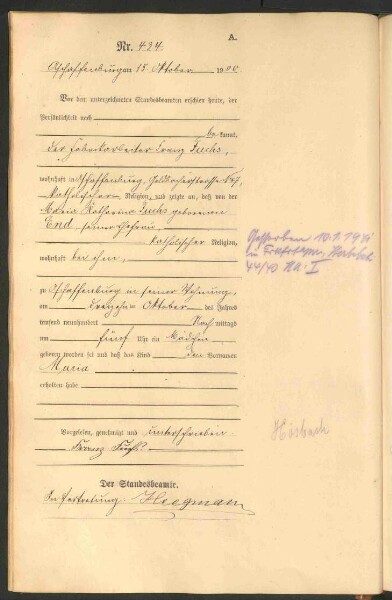 A.
Nr. 434
Aschaffenburg am 15 Oktober 1900
Vor dem unterzeichneten Standesbeamten erschien heute, der
Persönlichkeit nach
be kannt,
der Fabrikarbeiter Franz Fuchs,
wohnhaft in Aschaffenburg, Goldbacherstrasse
katholischer Religion, und zeigte an, daß von der
Maria Katharina Fuchs geborenen
End seiner Ehefrau,
katholischer Religion,
wohnhaft bei ihm,
zu Aschaffenburg in seiner Wohnung,
am dreizehn Oktober des Jahres
tausend neunhundert Nach mittags
um fünf Uhr ein Mädchen
geboren worden sei und daß das Kind den Vornamen
Maria
erhalten habe
Gestorben 10.1.1941
in
44/40 I
Vorgelesen, genehmigt und unterschrieben
Franz Fuchs
Hösbach
Der Standesbeamte.
In Vertretung. Hergmann